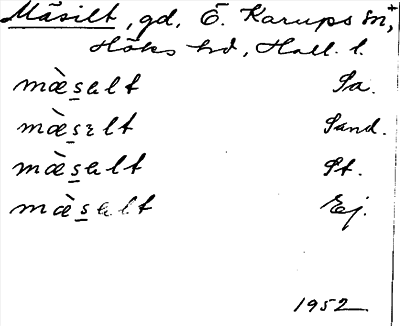 Mäsilt, gd, Ö. Karups sn,
Höks hd, Hall. l.
mæ̀s̲əlt Sa.
mæ̀s̲ɛlt Sand.
mæ̀s̲əlt St.
mæ̀s̲əlt Ej.
1952